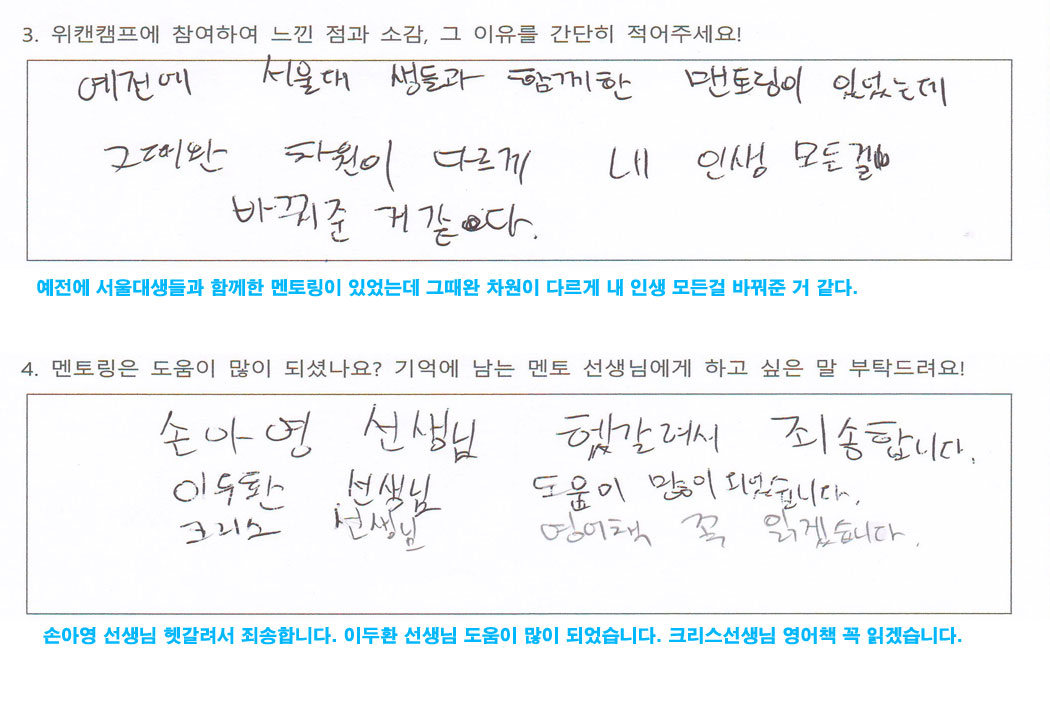 3. 위캔캠프에 참여하여 느낀 점과 소감, 그 이유를 간단히 적어주세요!
예전에 서울대 생들과 함께한 맨토링이 있었는데
그때완 차원이 다르게 내 인생 모든걸
바꿔준 거 같다.
예전에 서울대생들과 함께한 멘토링이 있었는데 그때완 차원이 다르게 내 인생 모든걸 바꿔준 거 같다.
4. 멘토링은 도움이 많이 되셨나요? 기억에 남는 멘토 선생님에게 하고 싶은 말 부탁드려요!
손아영 선생님 헷갈려서 죄송합니다.
이두환 선생님 도움이 많이 되었습니다.
크리스 선생님 영어책 꼭 읽겠습니다.
손아영 선생님 헷갈려서 죄송합니다. 이두환 선생님 도움이 많이 되었습니다. 크리스선생님 영어책 꼭 읽겠습니다.